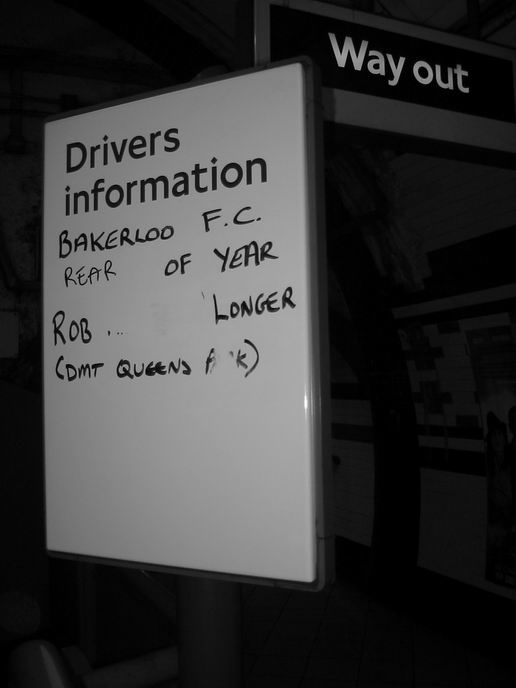 Way out
Drivers
information
BAKERLOO F.C.
REAR OF YEAR
ROB ... LONGER
(DMT QUEENS